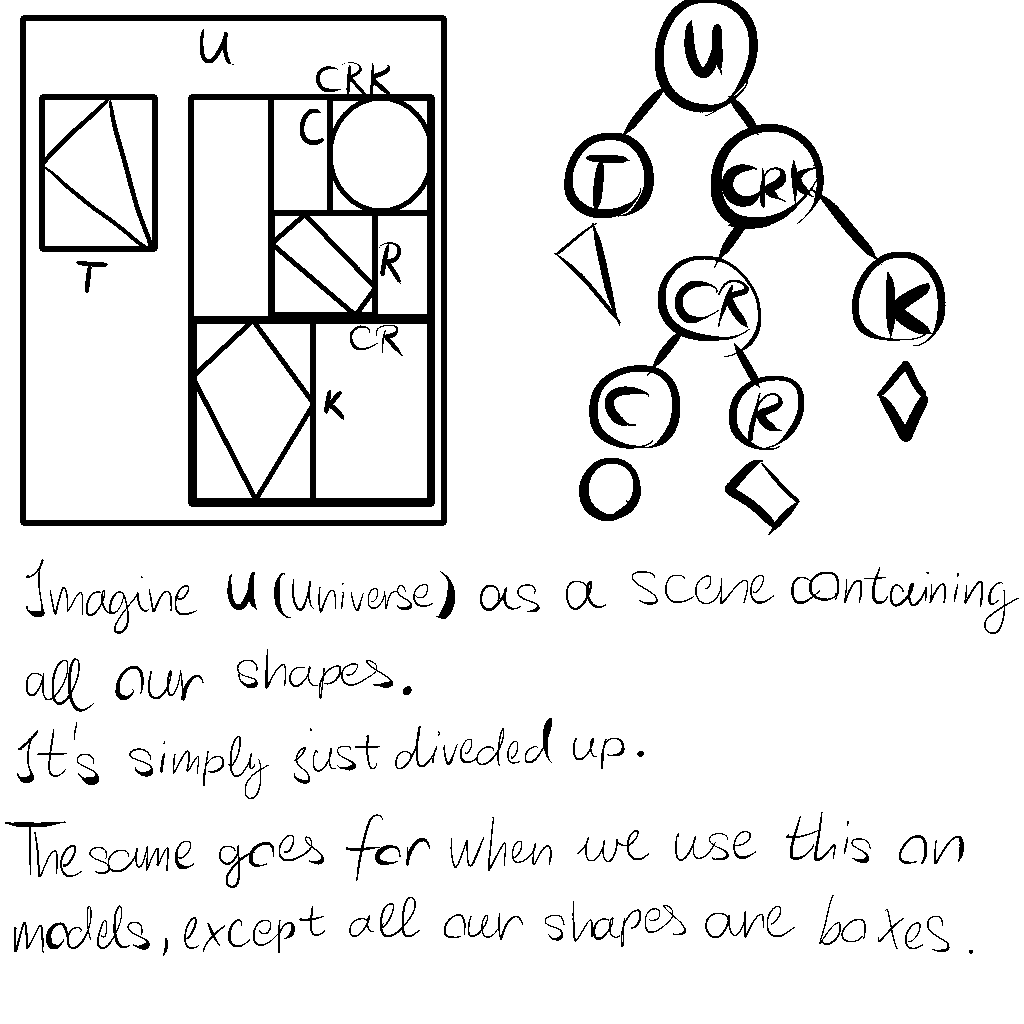 U
CRK
C
R
T
CR
K
U
T
CRK
CR
K
C
R
Imagine U (Universe) as a scene containing
all our shapes.
It's simply just diveded up.
The same goes for when we use this on
models, except all our shapes are boxes.